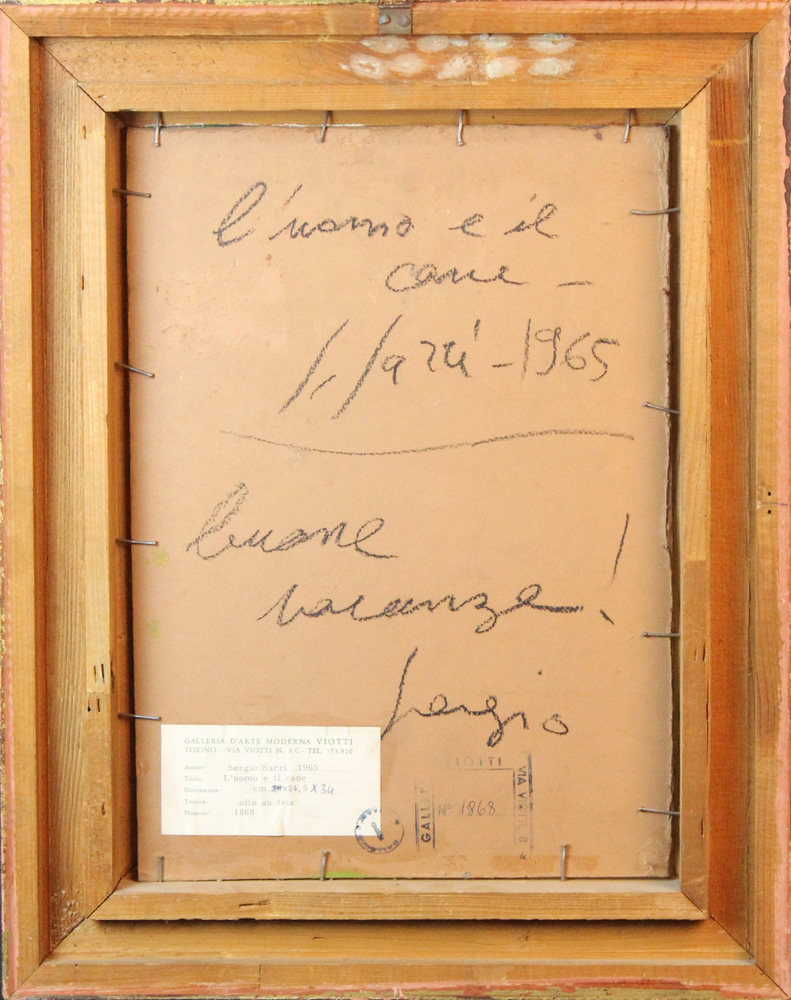 l'uomo e il
cane –
S. Sarri – 1965
buone
vacanze!
Sergio
GALLERIA D'ARTE MODERNA VIOTTI
TORINO - VIA VIOTTI N. 8 C - TEL.
Autore: Sergio Sarri 1965
Titolo: L'uomo e il cane
Dimensioni: cm. x24,5 x 34
Tecnica: olio su tela
Numero: 1868
VIOTTI
GALL
N° 1868
VIA VIOTTI, 8